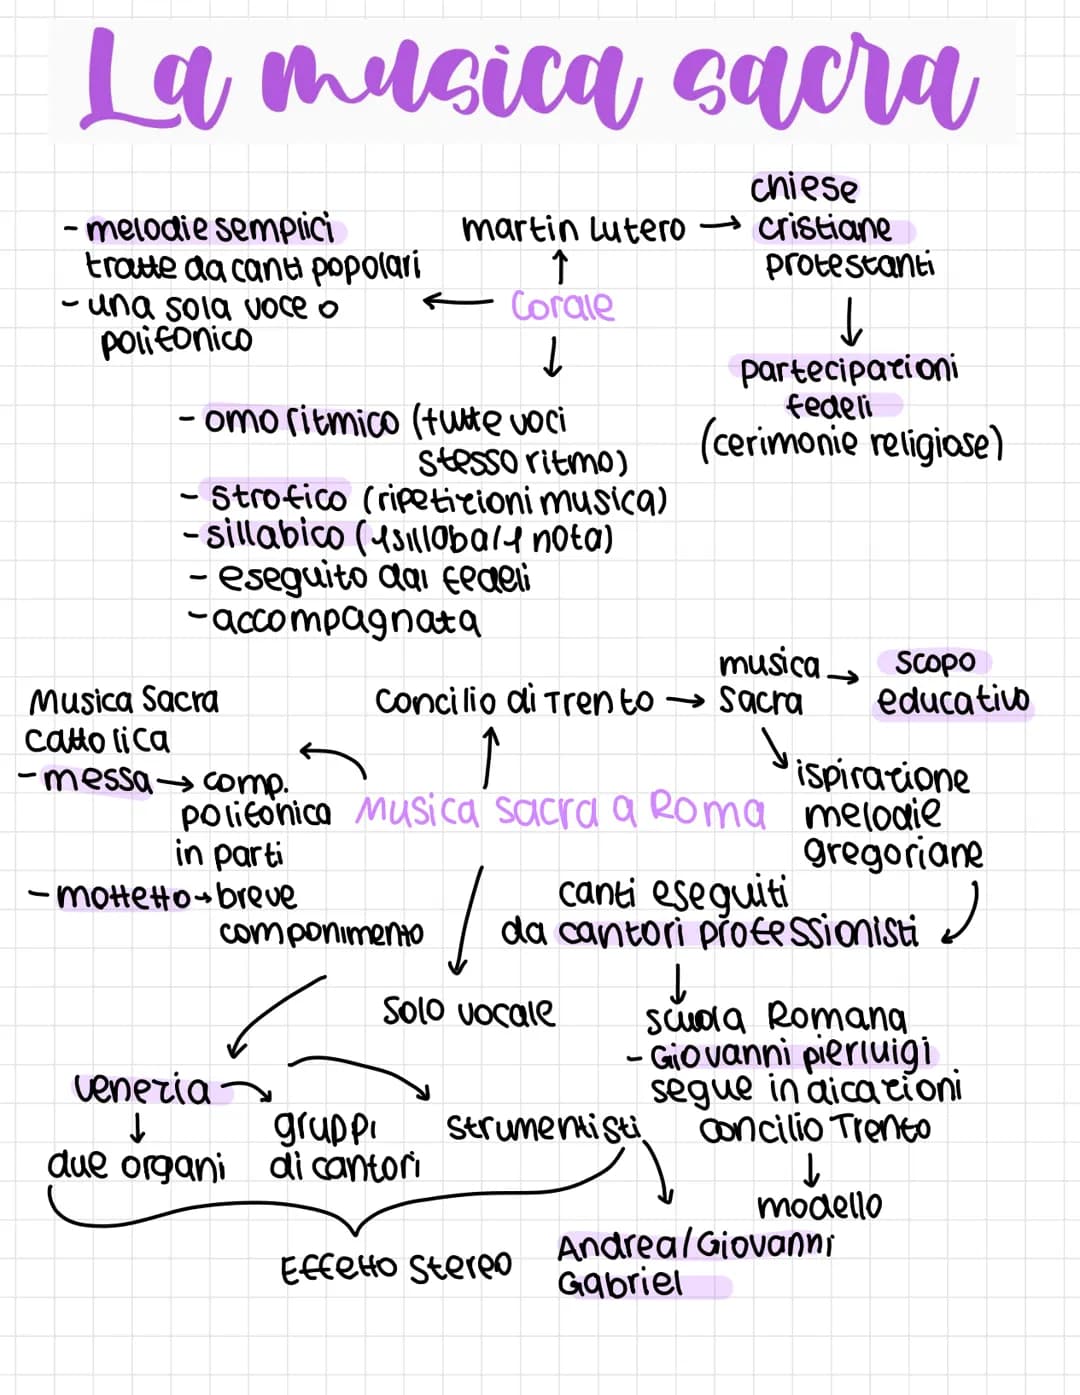 La musica sacra
- melodie semplici
tratte da canti popolari
- una sola voce o
polifonico
martin Lutero →
chiese
cristiane
protestanti
Corale
partecipazioni
fedeli
(cerimonie religiose)
- omoritmico (tutte voci
stesso ritmo)
- strofico (ripetizioni musica)
- sillabico (1 sillaba/1 nota)
- eseguito dai fedeli
- accompagnata
Musica Sacra
cattolica
- messa → comp.
polifonica
in parti
- mottetto → breve
componimento
Concilio di Trento →
musica →
Sacra
scopo
educativo
Musica sacra a Roma
ispirazione
melodie
gregoriane
canti eseguiti
da cantori professionisti
Solo vocale
scuola Romana
- Giovanni pierluigi
segue indicazioni
concilio Trento
modello
venezia
due organi
gruppi
di cantori
strumentisti
Effetto stereo
Andrea/Giovanni
Gabriel